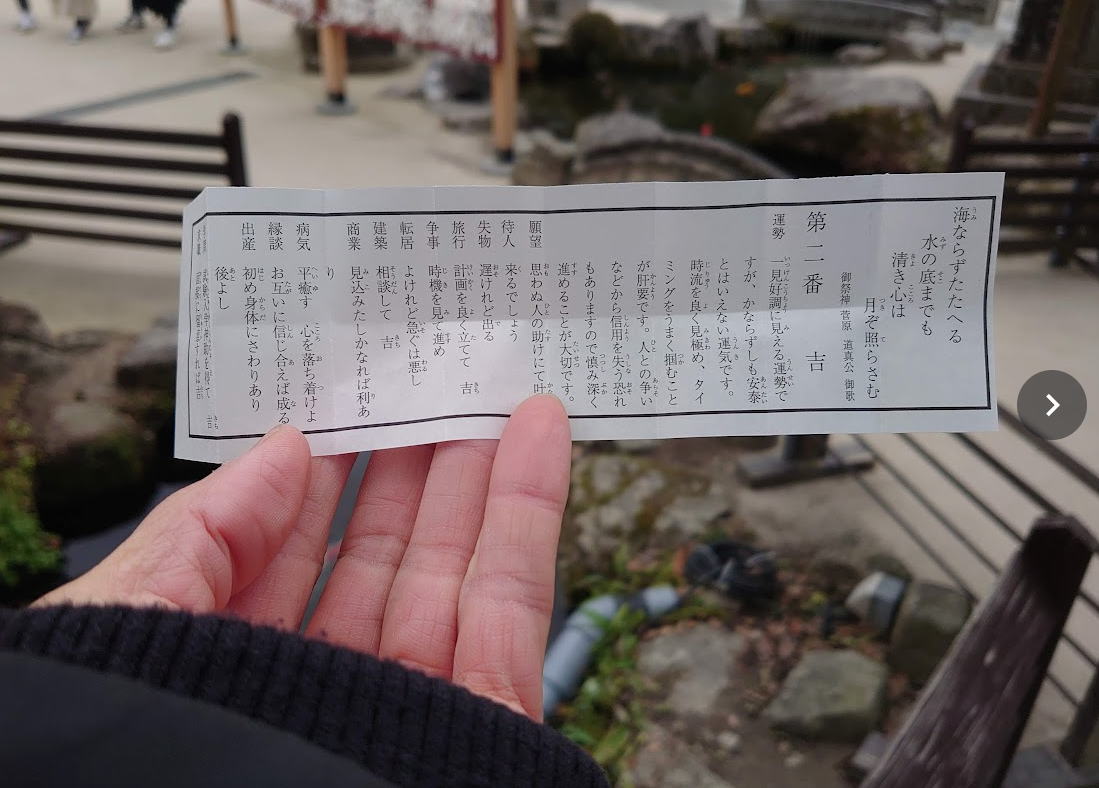 海ならずたたへる
水の底までも
清き心は
月ぞ照らさむ
御祭神 菅原 道真公 御歌
第二番 吉
運勢 一見好調に見える運勢で
すが、かならずしも安泰
とはいえない運気です。
時流を良く見極め、タイ
ミングをうまく掴むこと
が肝要です。人との争い
などから信用を失う恐れ
もありますので慎み深く
進めることが大切です。
願望 思わぬ人の助けにて叶
待人 来るでしょう
失物 遅けれど出る
旅行 計画を良く立てて 吉
争事 時機を見て進め
転居 よけれど急ぐは悪し
建築 相談して 吉
商業 見込みたしかなれば利あ
り
病気 平癒す 心を落ち着けよ
縁談 お互いに信じ合えば成る
出産 初め身体にさわりあり
後よし